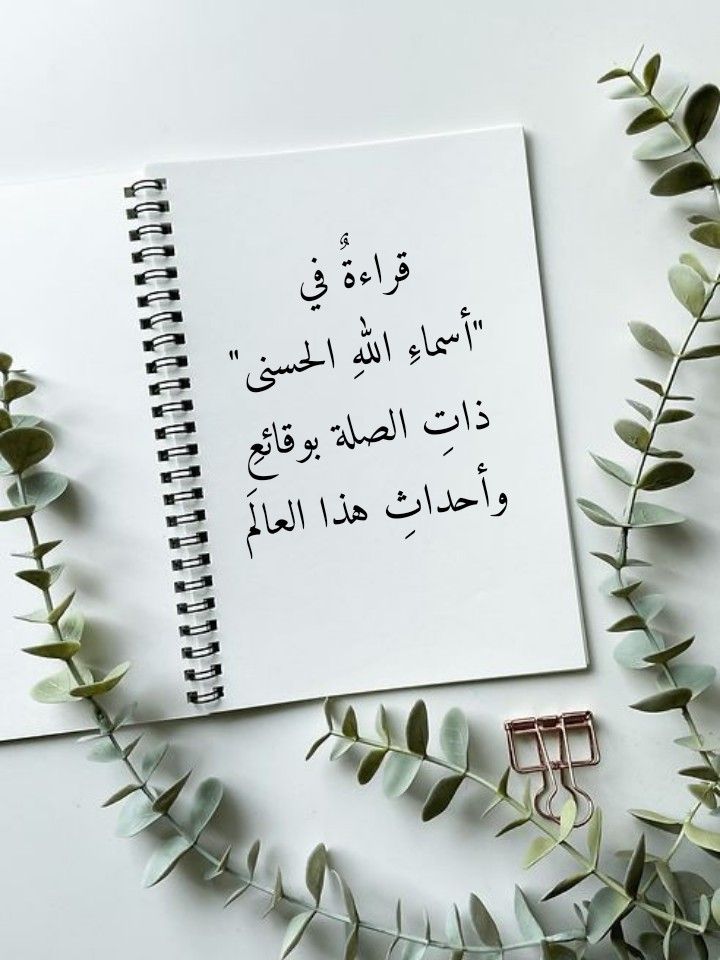 قراءةٌ في
"أسماءِ اللهِ الحسنى"
ذاتِ الصلة بوقائعِ
وأحداثِ هذا العالَم